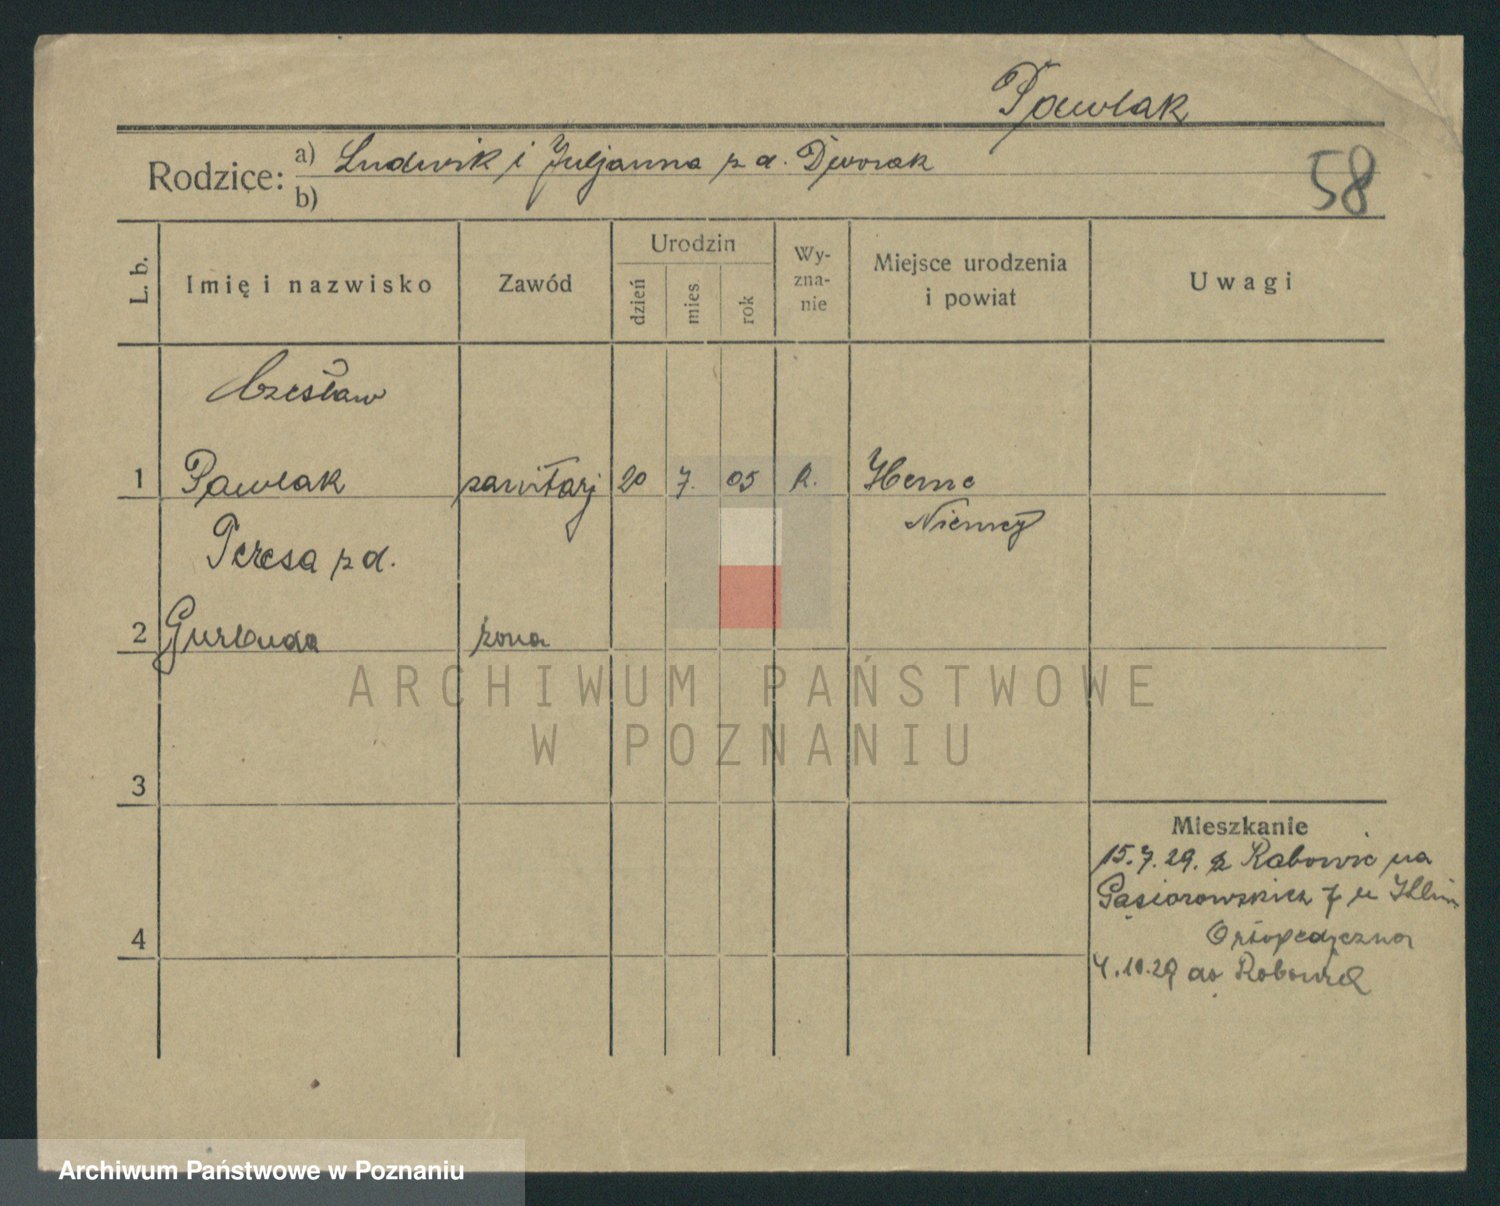 Pawlak
Rodzice: a) Ludwik i Juljanna z d. Dworak
b)
58
L. b.
Imię i nazwisko
Zawód
Urodzin
dzień
mies.
rok
Wy-
zna-
nie
Miejsce urodzenia
i powiat
Uwagi
Czesław
1 Pawlak sanitarj 20 7. 05 R. Herne
Niemcy
Teresa z d.
2 żona
ARCHIWUM PAŃSTWOWE
W POZNANIU
3
Mieszkanie
15.7.29. z Rabowic na
Gąsiorowskich 7 u Klin
Ortopedyczna
4
4.10.29 do Rabowic
Archiwum Państwowe w Poznaniu